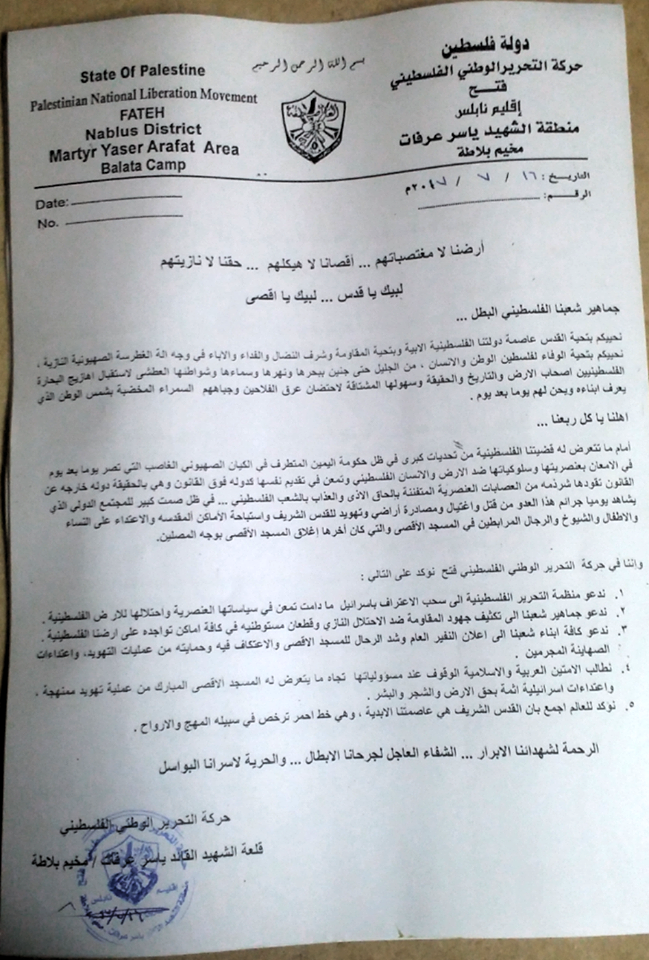 بسم الله الرحمن الرحيم
دولة فلسطين
حركة التحرير الوطني الفلسطيني
فتـــح
إقليم نابلس
منطقة الشهيد ياسر عرفات
مخيم بلاطة
State Of Palestine
Palestinian National Liberation Movement
FATEH
Nablus District
Martyr Yaser Arafat Area
Balata Camp
التاريخ: ١٦ / ٧ / ٢٠١٧م
الرقـم:
Date:
No.
أرضنا لا مغتصباتهم ... أقصانا لا هيكلهم ... حقنا لا نازيتهم
لبيك يا قدس ... لبيك يا اقصى
جماهير شعبنا الفلسطيني البطل ...
نحييكم بتحية القدس عاصمة دولتنا الفلسطينية الابية وبتحية المقاومة وشرف النضال والفداء والاباء في وجه الة الغطرسة الصهيونية النازية ،
نحييكم بتحية الوفاء لفلسطين الوطن والانسان ، من الجليل حتى جنين ببحرها ونهرها وسماءها وشواطئها العطشى لاستقبال اهازيج البحارة
الفلسطينيين اصحاب الارض والتاريخ والحقيقة وسهولها المشتاقة لاحتضان عرق الفلاحين وجباههم السمراء المخضبة بشمس الوطن الذي
يعرف ابناءه ويحن لهم يوما بعد يوم .
اهلنا يا كل ربعنا ...
أمام ما تتعرض له قضيتنا الفلسطينية من تحديات كبرى في ظل حكومة اليمين المتطرف في الكيان الصهيوني الغاصب التي تصر يوما بعد يوم
في الامعان بعنصريتها وسلوكياتها ضد الارض والانسان الفلسطيني وتمعن في تقديم نفسها كدوله فوق القانون وهي بالحقيقة دوله خارجه عن
القانون تقودها شرذمه من العصابات العنصرية المتفننة بالحاق الاذى والعذاب بالشعب الفلسطيني ... في ظل صمت كبير للمجتمع الدولي الذي
يشاهد يوميا جرائم هذا العدو من قتل واغتيال ومصادرة أراضي وتهويد للقدس الشريف واستباحة الأماكن المقدسه والاعتداء على النساء
والاطفال والشيوخ والرجال المرابطين في المسجد الأقصى والتي كان أخرها إغلاق المسجد الأقصى بوجه المصلين.
وإننا في حركة التحرير الوطني الفلسطيني فتح نوكد على التالي :
١. ندعو منظمة التحرير الفلسطينية الى سحب الاعتراف باسرائيل ما دامت تمعن في سياساتها العنصرية واحتلالها للارض الفلسطينية .
٢. ندعو جماهير شعبنا الى تكثيف جهود المقاومة ضد الاحتلال النازي وقطعان مستوطنيه في كافة اماكن تواجده على ارضنا الفلسطينية .
٣. ندعو كافة ابناء شعبنا الى اعلان النفير العام وشد الرحال للمسجد الاقصى والاعتكاف فيه وحمايته من عمليات التهويد، واعتداءات
الصهاينة المجرمين .
٤. نطالب الامتين العربية والاسلامية الوقوف عند مسؤولياتها تجاه ما يتعرض له المسجد الاقصى المبارك من عملية تهويد ممنهجة ،
واعتداءات اسرائيلية اثمة بحق الارض والشجر والبشر .
٥. نوكد للعالم اجمع بان القدس الشريف هي عاصمتنا الابدية ، وهي خط احمر ترخص في سبيله المهج والارواح .
الرحمة لشهدائنا الابرار ... الشفاء العاجل لجرحانا الابطال ... والحرية لاسرانا البواسل
حركة التحرير الوطني الفلسطيني
قلعة الشهيد القائد ياسر عرفات / مخيم بلاطة
إقليم نابلس